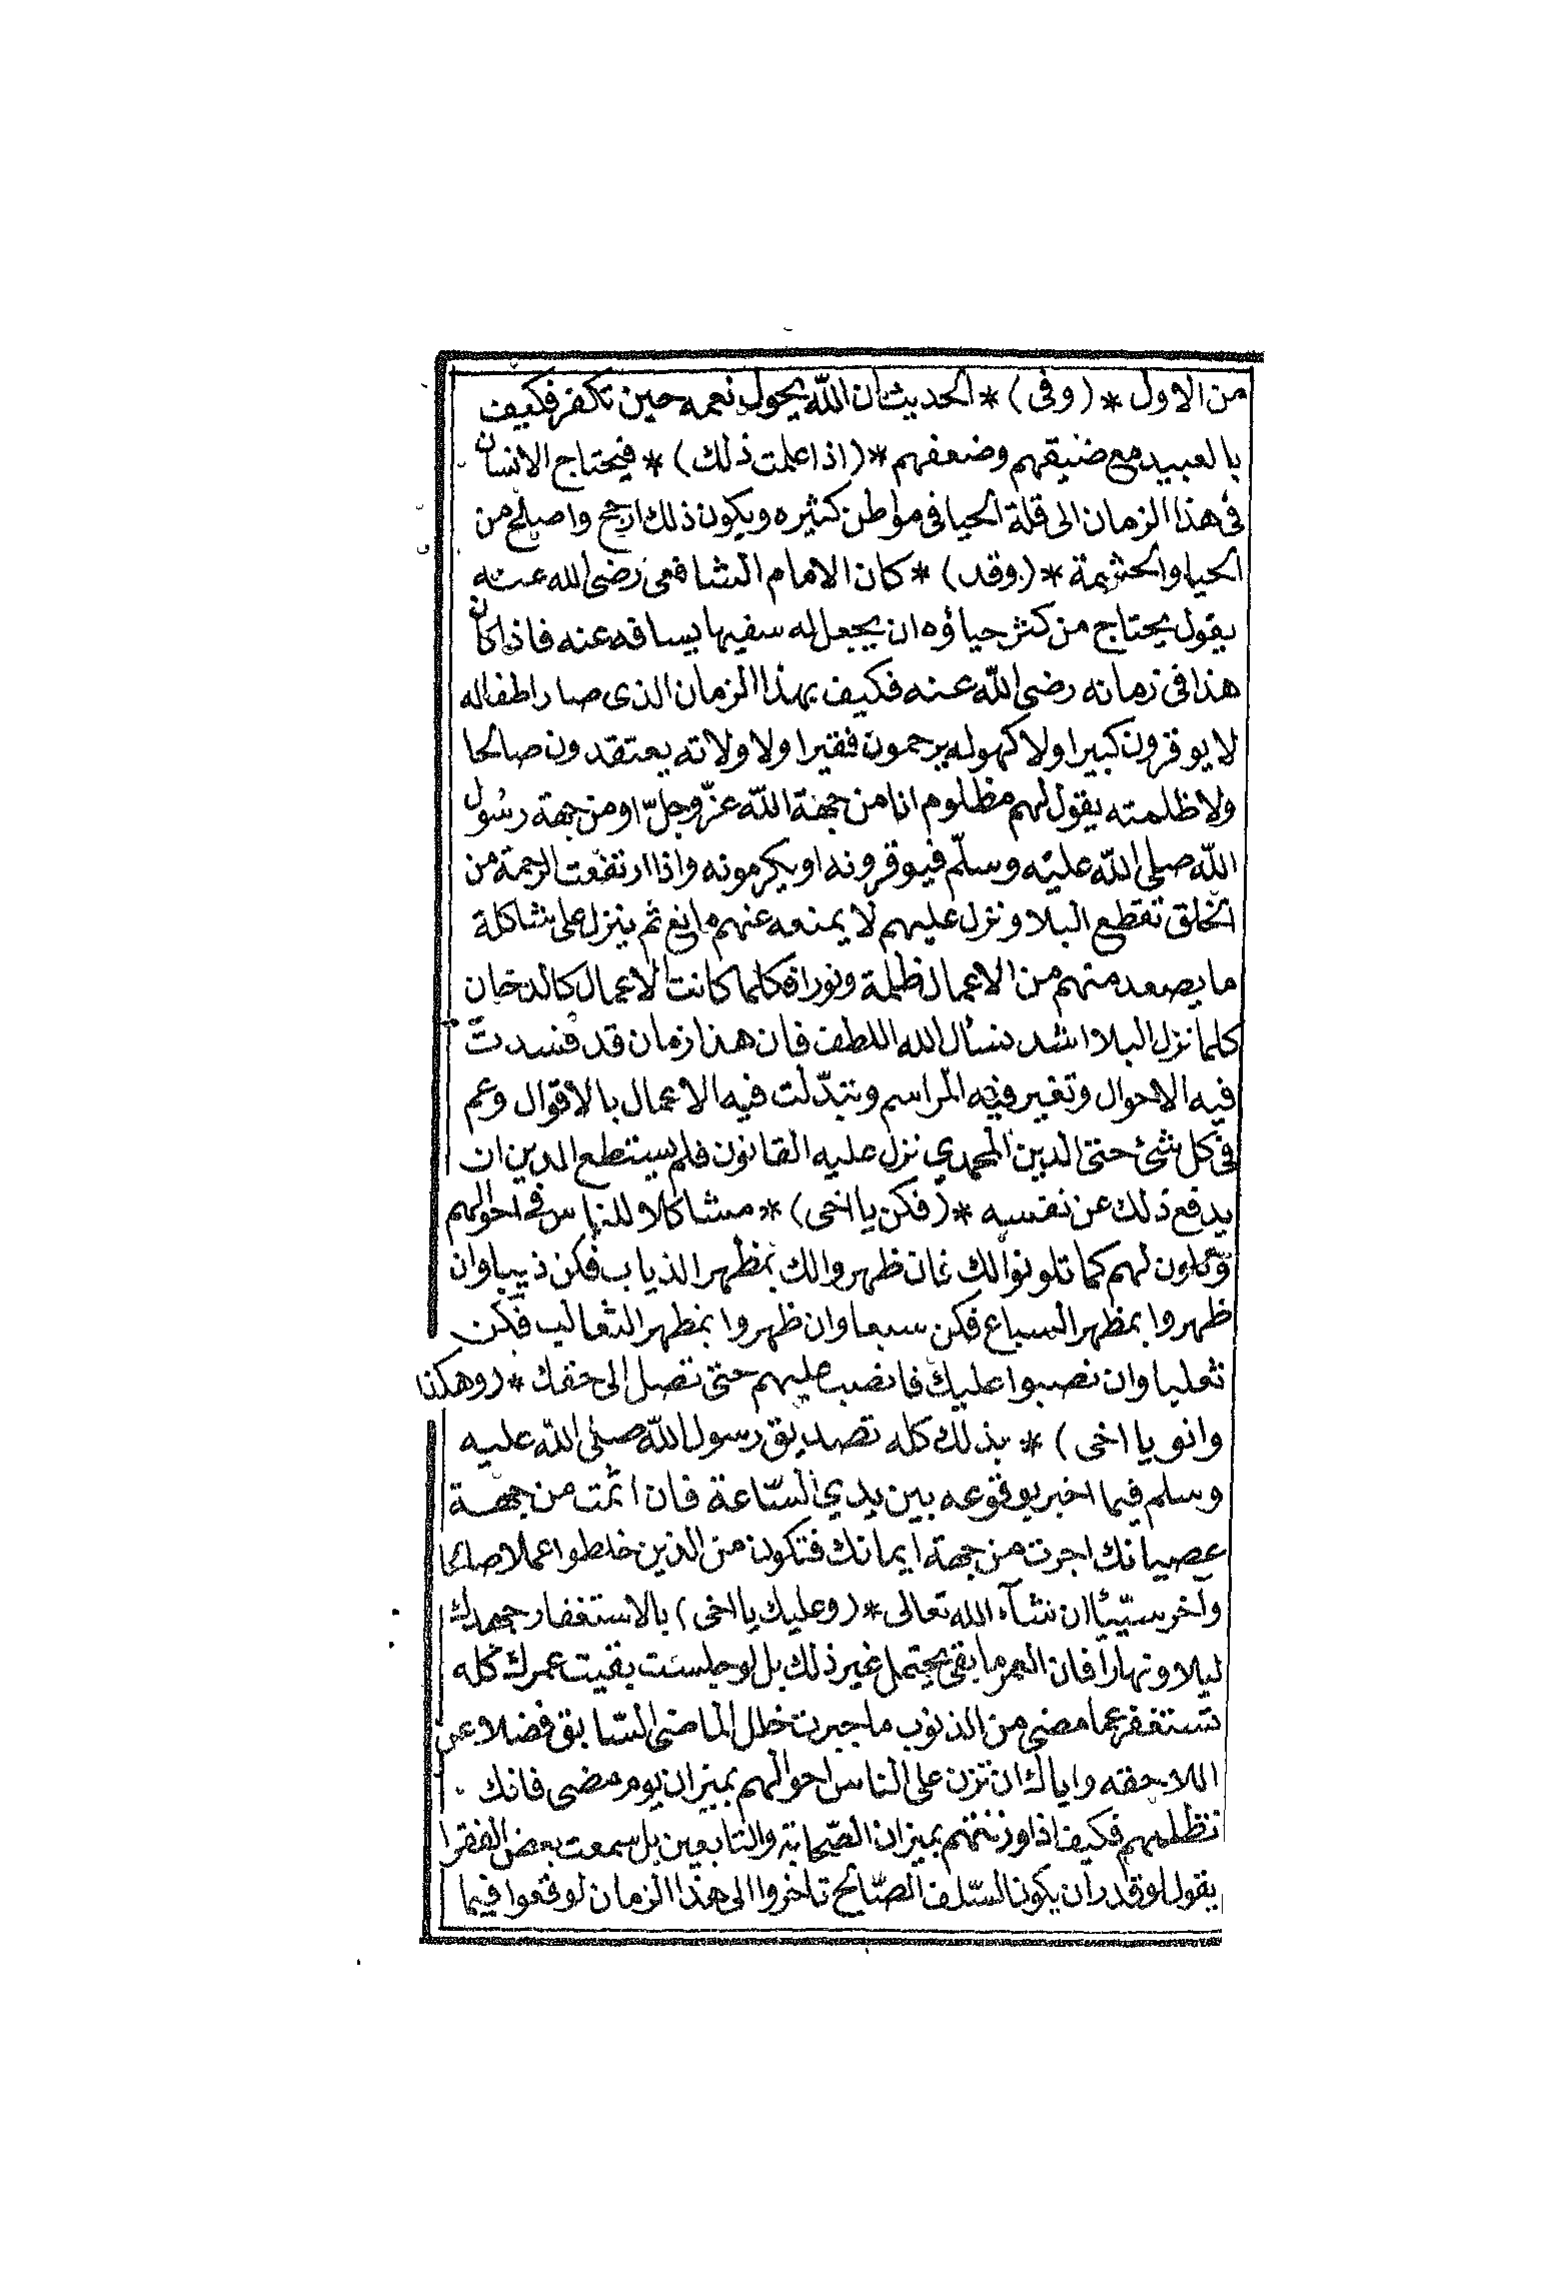 من الاول * (وفى) * الحديث ان اللّه يحول نعمه حين تكفر فكيف
بالعبيد مع ضيقهم وضعفهم * (اذا علمت ذلك) * فيحتاج الانسان
فى هذا الزمان الى قلة الحيا فى مواطن كثيره ويكون ذلك ارجح واصلح من
الحيا والحشمة * (وقد) * كان الامام الشافعى رضى الله عنه
يقول يحتاج من كثر حياؤه ان يجعل له سفيها يسافه عنه فاذا كان
هذا فى زمانه رضى اللّه عنه فكيف بهذا الزمان الذى صار اطفاله
لا يوقرون كبيرا ولا كهوله يرحمون فقيرا ولا ولاته يعتقدون صالحا
ولا ظلمته يقول لهم مظلوم انا من جهة اللّه عزّ وجلّ او من جهة رسُول
اللّه صلى اللّه عليْه وسلّم فيوقرونه او يكرمونه واذا ارتفعت الرحمة من
الخلق تقطع البلا ونزل عليهم لا يمنعه عنهم مانع ثم ينزل على مشاكلة
ما يصعد منهم من الاعمال ظلمة ونورا فكلما كانت الاعمال كالدخان
كلما نزل البلا اشد نسأل الله اللطف فان هذا زمان قد فسدت
فيه الاحوال وتغير فيه المراسم وتبدّلت فيه الاعمال بالاقوال وعم
فى كل شئ حتى الدين المحمدي نزل عليه القانون فلم يستطع الدين ان
يدفع ذلك عن نفسه * (فكن يا اخى) * مشاكلا للناس فى احوالهم
وتلون لهم كما تلونوا لك فان ظهروا لك بمظهر الذياب فكن ذيبا وان
ظهروا بمظهر السباع فكن سبعا وان ظهروا بمظهر الثعالب فكن
ثعلبا وان نصبوا عليك فانصب عليهم حتى تصل الى حقك * (وهكذا
وانو يا اخى) * بذلك كله تصديق رسول اللّه صلى اللّه عليه
وسلم فيما اخبر بوقوعه بين يدي السّاعة فان اثمت من جهة
عصيانك اجرت من جهة ايمانك فتكون من الذين خلطوا عملا صالحا
واخر سيّئا ان شآء الله تعالى * (وعليك يا اخى) بالاستغفار جهدك
ليلا ونهارا فان العمر ما بقى يحتمل غير ذلك بل لو جلست بقيت عمرك كله
تستغفر عما مضى من الذنوب ما جبرت خلل الماضى السّابق فضلا عن
اللاحقه واياك ان تزن على الناس احوالهم بميزان يوم مضى فانك
تظلمهم فكيف اذا وزنتهم بميزان الصّحابة والتابعين بل سمعت بعض الفقرا
يقول لو قدر ان يكون السّلف الصّالح تاخروا الى هذا الزمان لوقعوا فيما